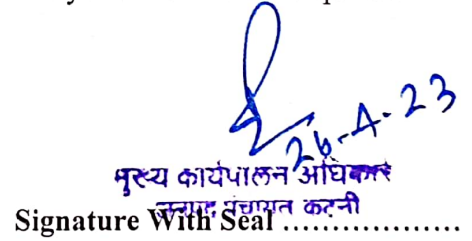 26-4-23
मुख्य कार्यपालन अधिकारी
जनपद पंचायत कटनी
Signature With Seal ..................